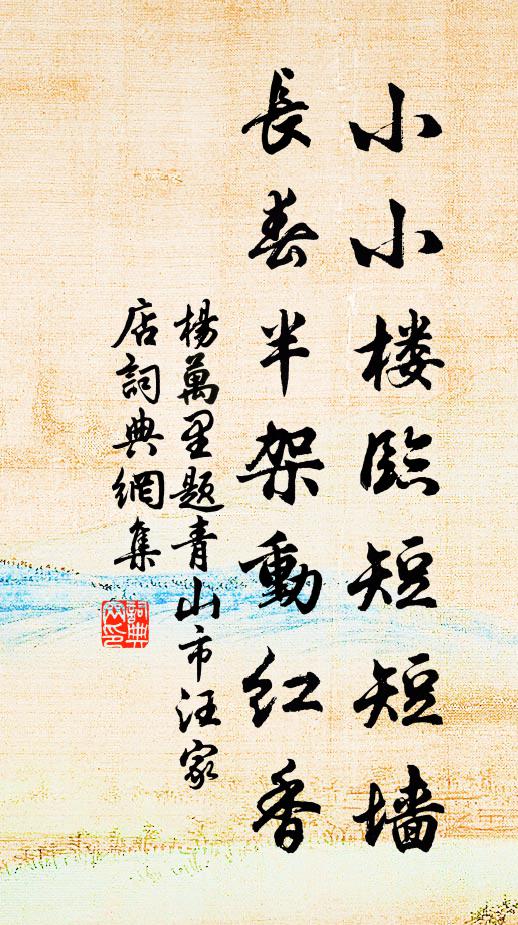 小小楼臨短短墙
長春半架動紅香
楊萬里题青山市汪家
店詞典網集
詞典網印